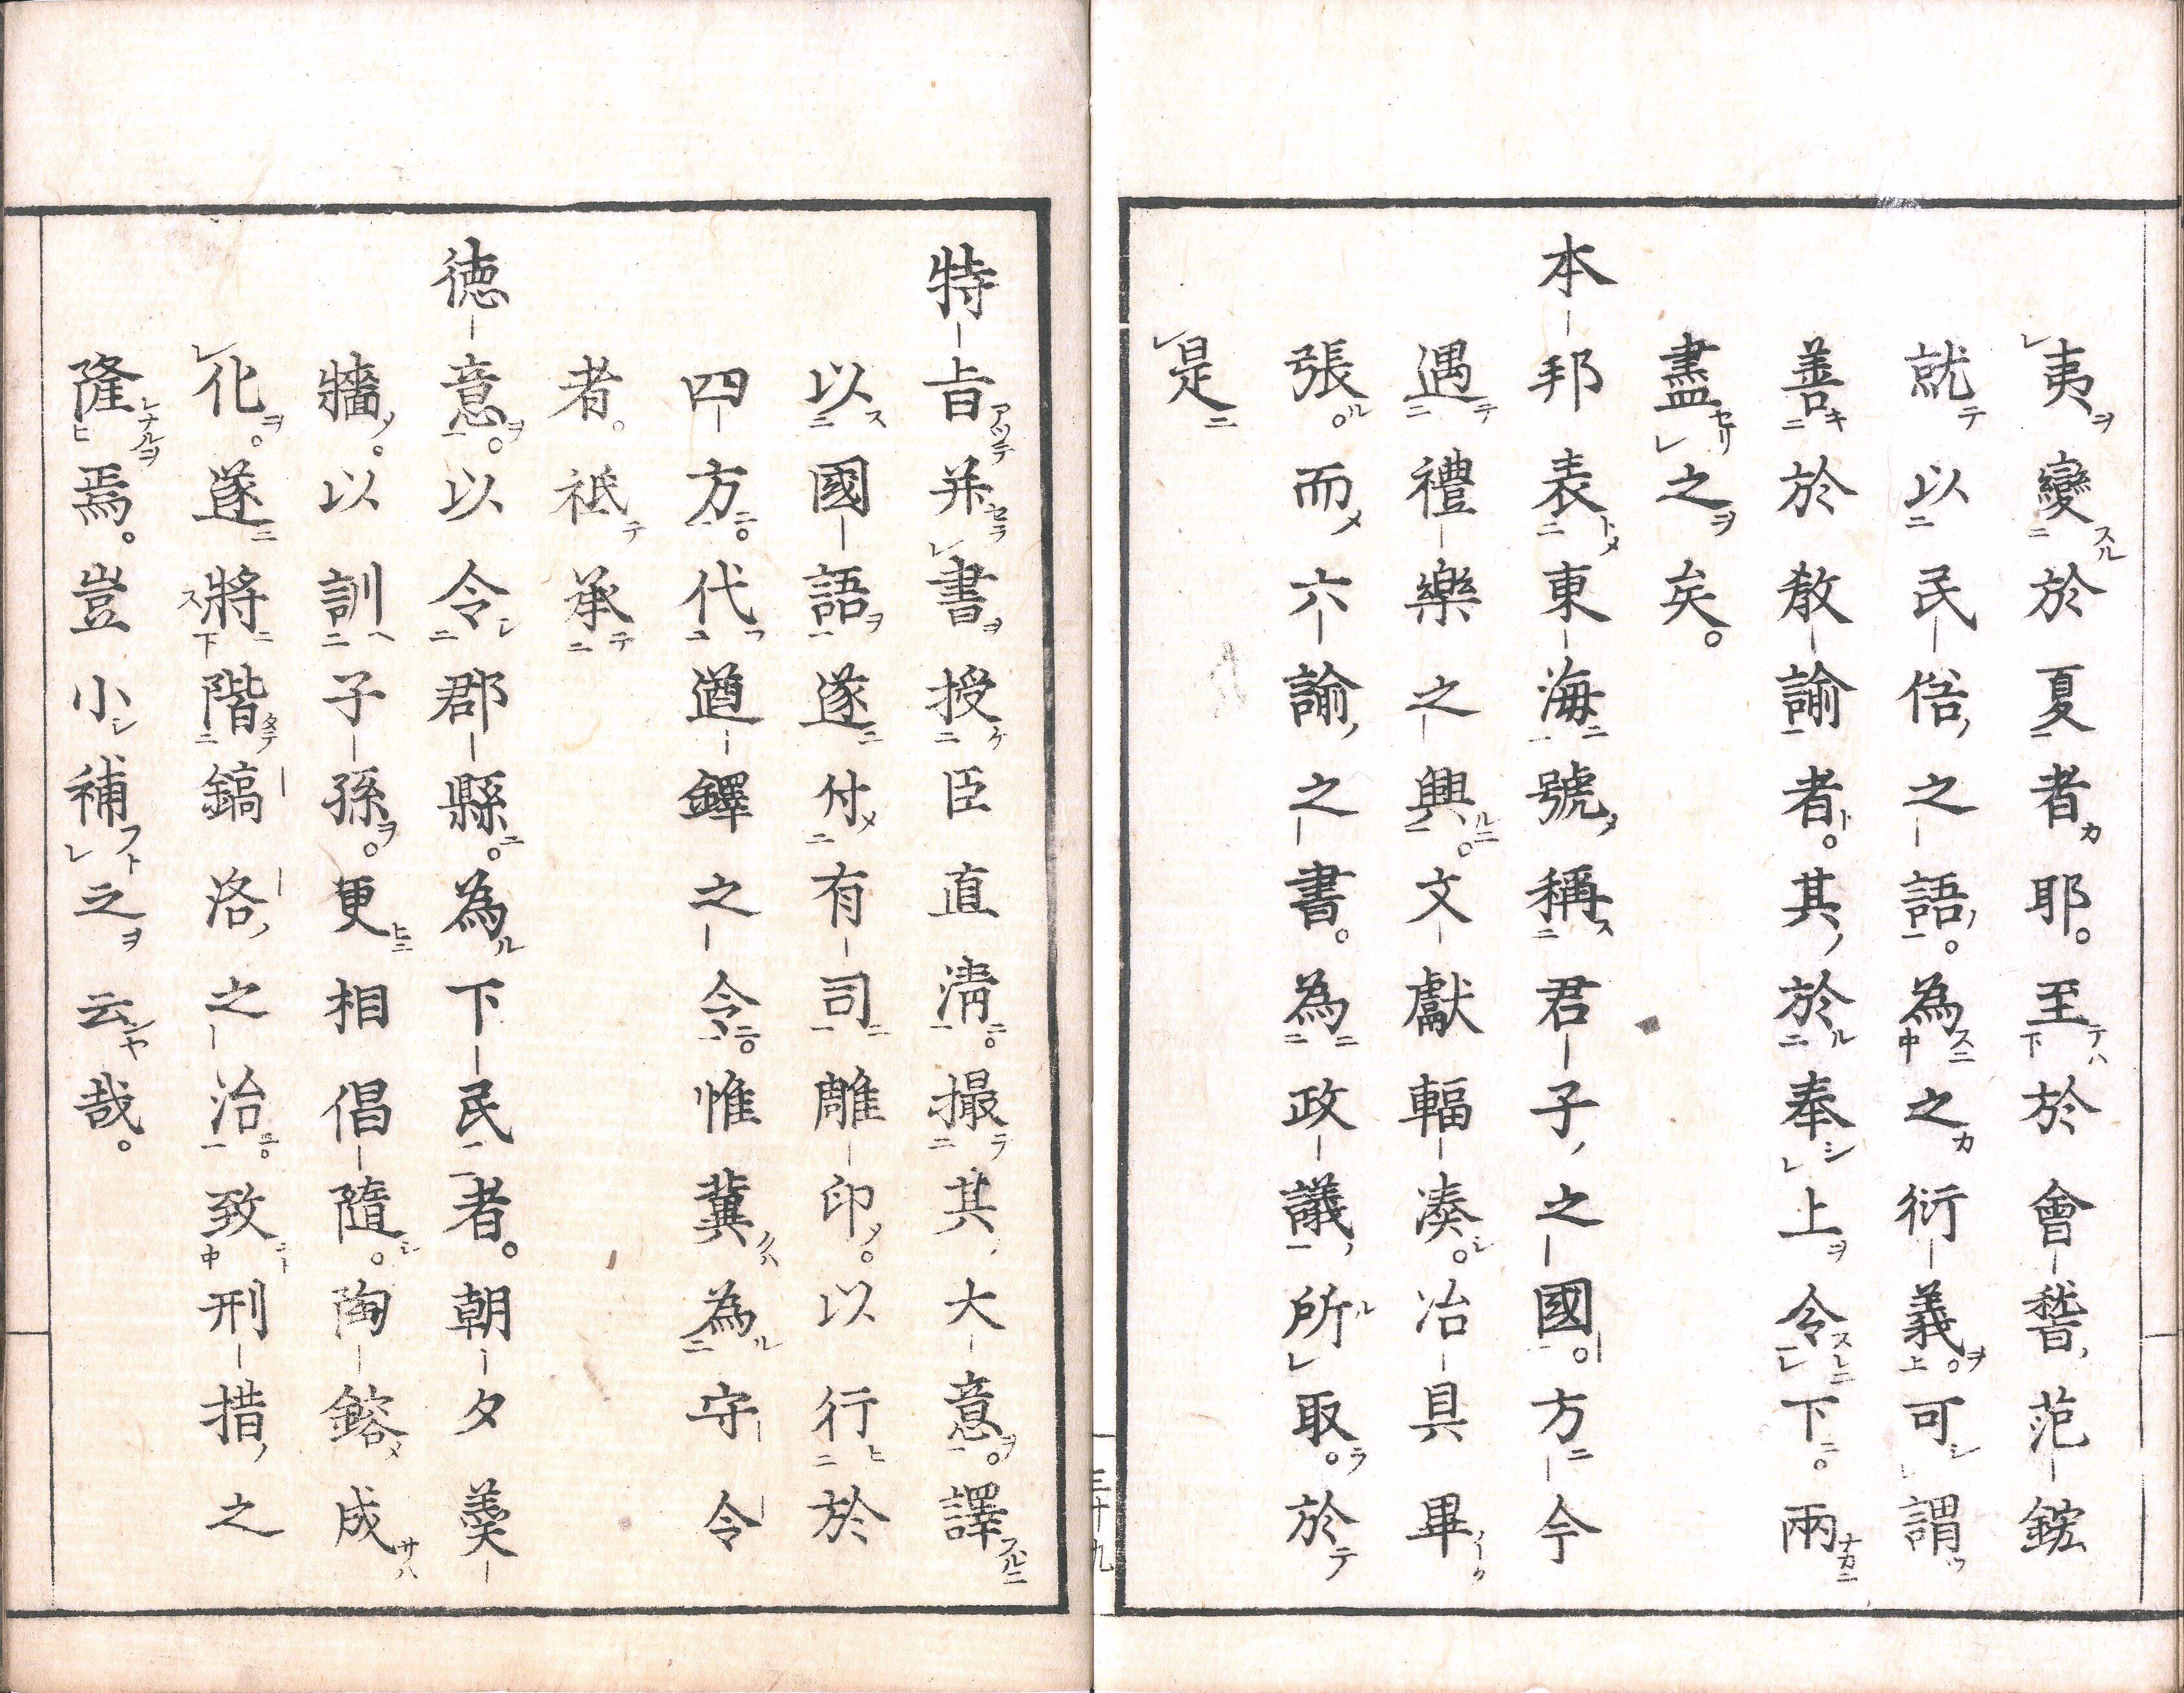 夷變於夏者耶。至於會稽范鋐
就以民俗之語。為之衍義。可謂
善於敎諭者。其於奉上令下。兩
盡之矣。
本邦表東海號稱君子之國。方今
遇禮樂之興。文獻輻湊。冶具畢
張。而六諭之書。為政議所取。於
是
特旨并書授臣直淸。撮其大意。譯
以國語遂付有司雕印。以行於
四方。代遒鐸之令。惟冀為守令
者。祗承
德意。以令郡縣。為下民者。朝夕羹
牆。以訓子孫。更相倡隨。陶鎔成
化。遂將階鎬洛之治。致刑措之
隆焉。豈小補之云哉。
三十九